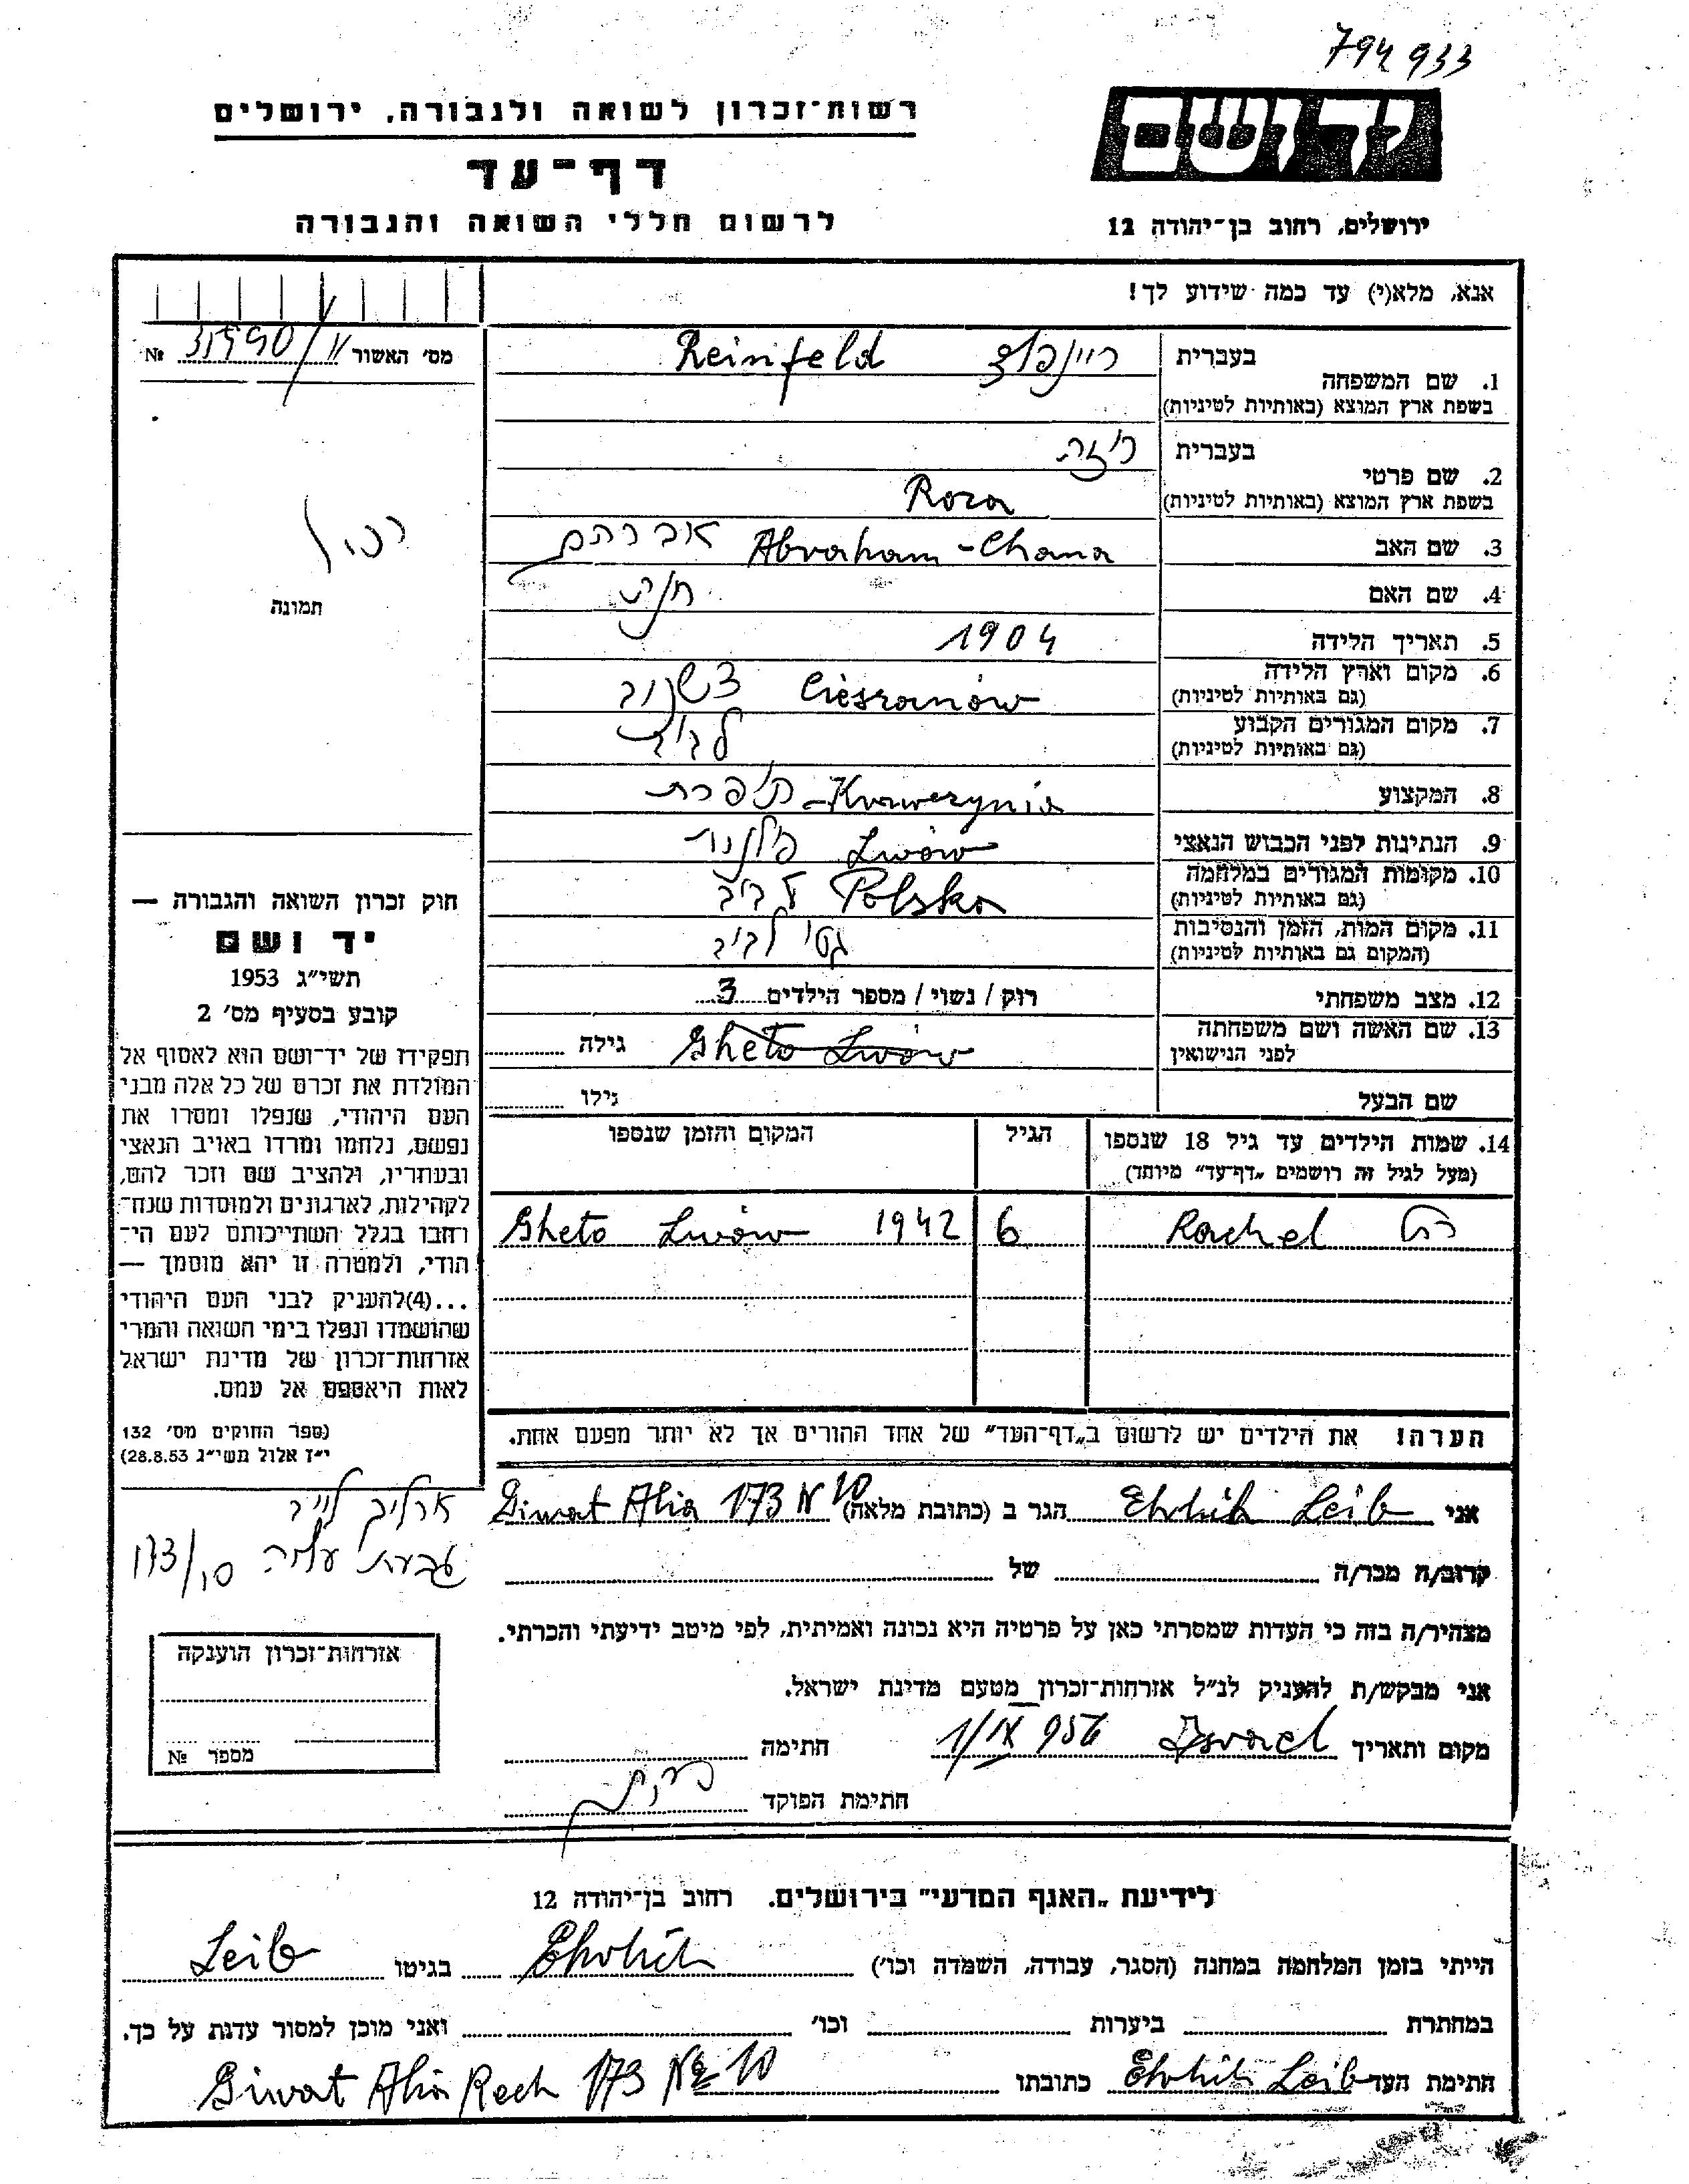 794933
ידושם
רשות־זכרון לשואה ולגבורה, ירושלים
דף־עד
לרשום חללי השואה והגבורה
ירושלים, רחוב בן־יהודה 12
אנא, מלא(י) עד כמה שידוע לך!
מס' האשור № 31990/11
בעברית
1. שם המשפחה
בשפת ארץ המוצא (באותיות לטיניות)
ריינפלד Reinfeld
בעברית
2. שם פרטי
בשפת ארץ המוצא (באותיות לטיניות)
ריזה
Roza
3. שם האב Abraham - Chana אברהם
4. שם האם חנה
5. תאריך הלידה 1904
6. מקום וארץ הלידה
(גם באותיות לטיניות)
Cieszanów צשנוב
7. מקום המגורים הקבוע
(גם באותיות לטיניות)
לבוב
8. המקצוע תופרת - Krawczynia
9. הנתינות לפני הכבוש הנאצי Lwów פולנית
10. מקומות המגורים במלחמה
(גם באותיות לטיניות)
Polska לבוב
11. מקום המות, הזמן והנסיבות
(המקום גם באותיות לטיניות)
גטו לבוב
12. מצב משפחתי רוק / נשוי / מספר הילדים 3
13. שם האשה ושם משפחתה
לפני הנישואין
Gheto Lwów גילה
שם הבעל גילו
14. שמות הילדים עד גיל 18 שנספו
(מעל לגיל זה רושמים „דף־עד" מיוחד)
הגיל
המקום והזמן שנספו
רחל Rachel 6 Gheto Lwów 1942
הערה! את הילדים יש לרשום ב„דף־העד" של אחד ההורים אך לא יותר מפעם אחת.
תמונה
חוק זכרון השואה והגבורה —
יד ושם
תשי״ג 1953
קובע בסעיף מס' 2
תפקידו של יד־ושם הוא לאסוף אל
המולדת את זכרם של כל אלה מבני
העם היהודי, שנפלו ומסרו את
נפשם, נלחמו ומרדו באויב הנאצי
ובעוזריו, ולהציב שם וזכר להם,
לקהילות, לארגונים ולמוסדות שנח־
רחבו בגלל השתייכותם לעם הי־
הודי, ולמטרה זו יהא מוסמך —
...(4)להעניק לבני העם היהודי
שהושמדו ונפלו בימי השואה והמרי
אזרחות־זכרון של מדינת ישראל
לאות היאספם אל עמם.
(ספר החוקים מס' 132
י״ז אלול תשי״ג 28.8.53)
ארליך לייב
גבעת עליה 173/10
אני Ehrlich Leib הגר ב (כתובת מלאה) Giwat Alia 173 N 10
קרוב/ה מכר/ה של
מצהיר/ה בזה כי העדות שמסרתי כאן על פרטיה היא נכונה ואמיתית, לפי מיטב ידיעתי והכרתי.
אני מבקש/ת להעניק לנ״ל אזרחות־זכרון מטעם מדינת ישראל.
מקום ותאריך Israel 1/IX 956 חתימה
חתימת הפוקד
אזרחות־זכרון הוענקה
מספר №
לידיעת „האגף המדעי" בירושלים. רחוב בן־יהודה 12
הייתי בזמן המלחמה במחנה (הסגר, עבודה, השמדה וכו') Ehrlich בגיטו Leib
במחתרת ביערות וכו' ואני מוכן למסור עדות על כך.
חתימת העד Ehrlich Leib כתובתו Giwat Alia Rech 173 № 10